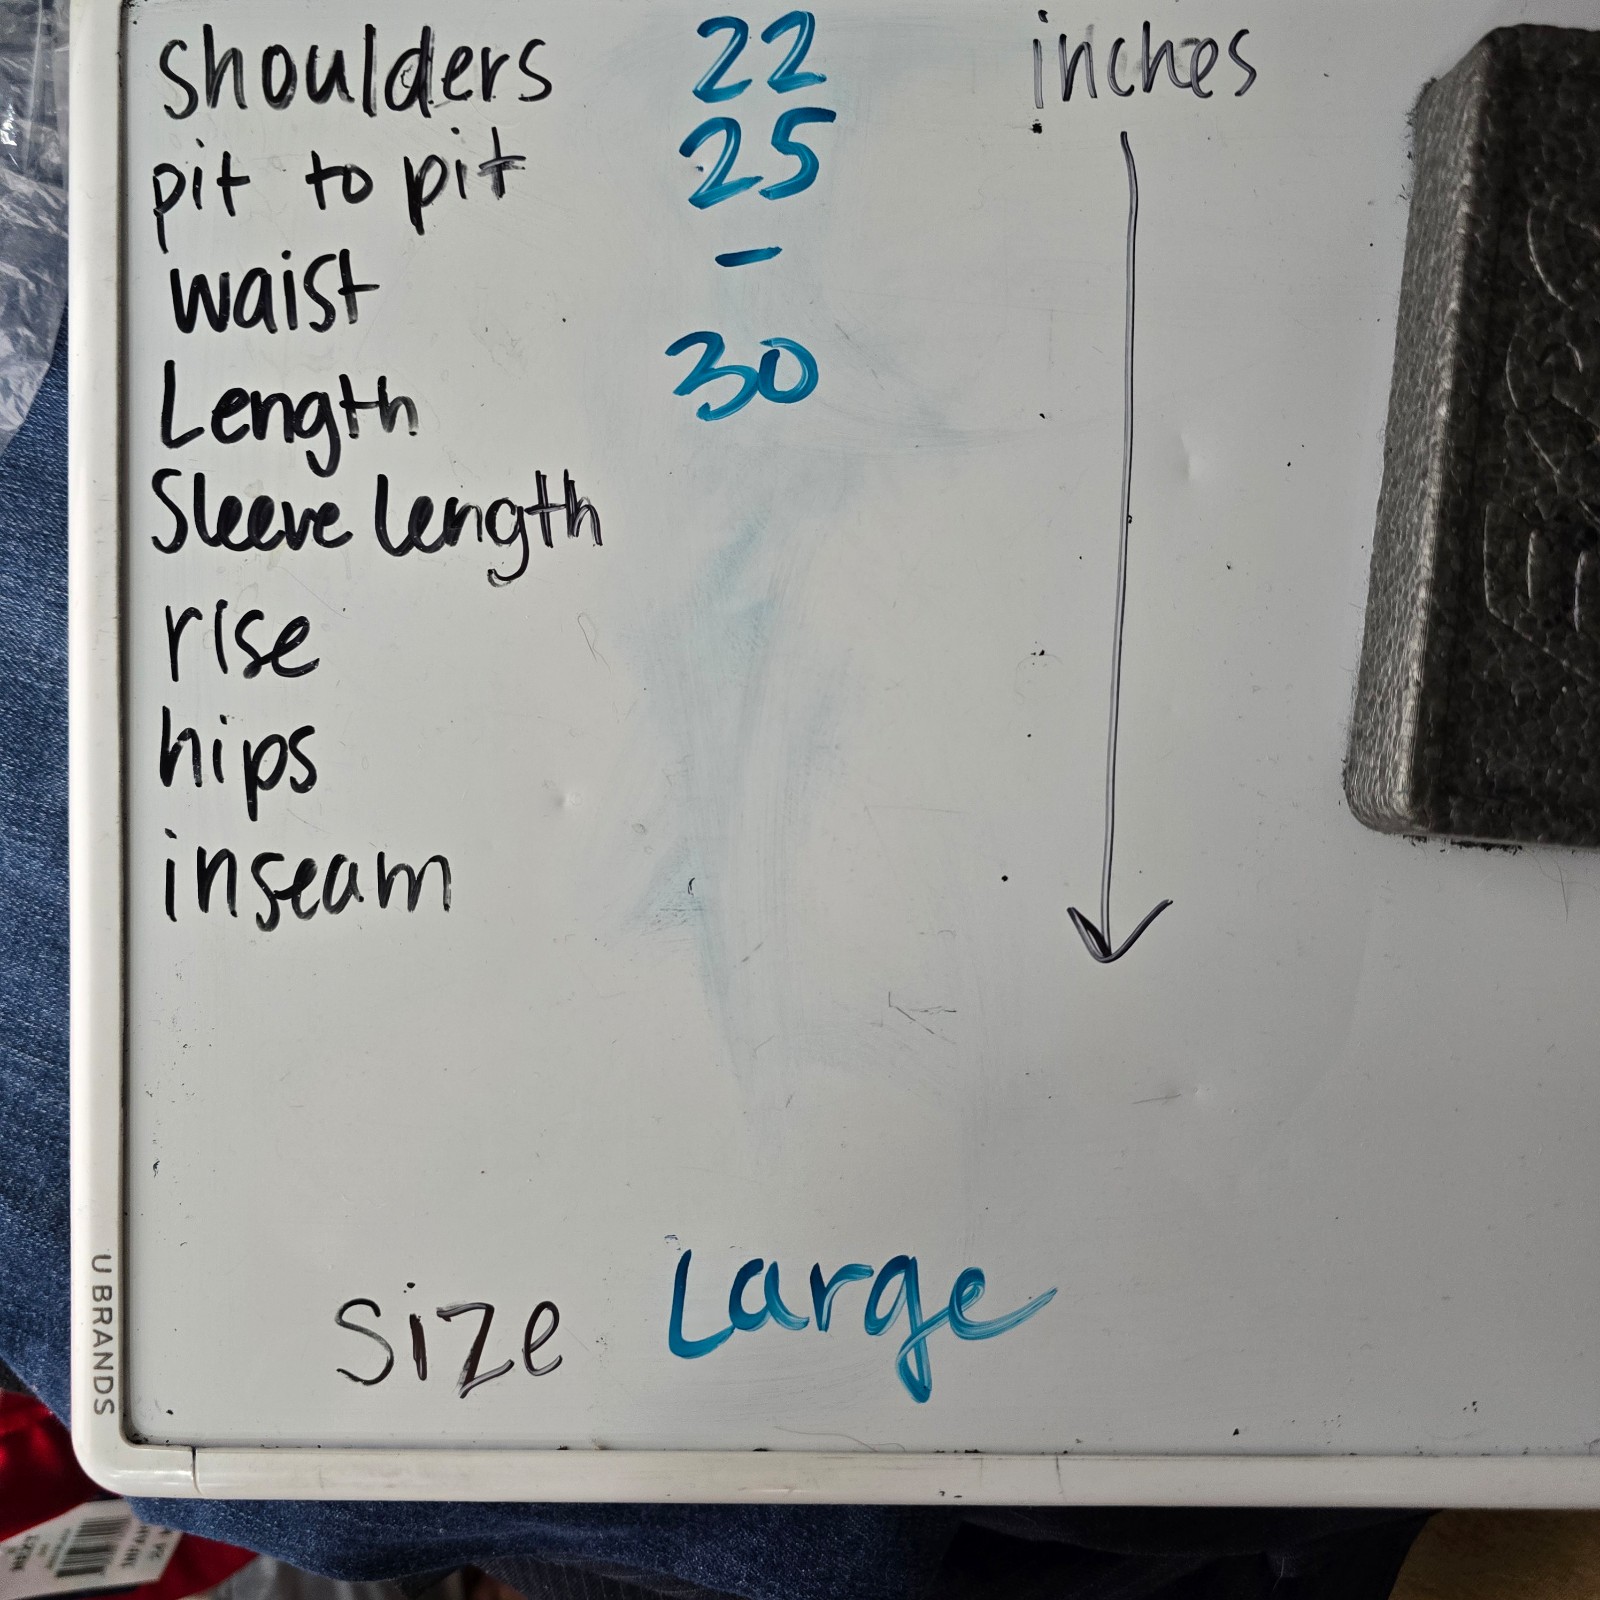 shoulders 22 inches
pit to pit 25
waist -
Length 30
Sleeve length
rise
hips
inseam
size Large
U BRANDS